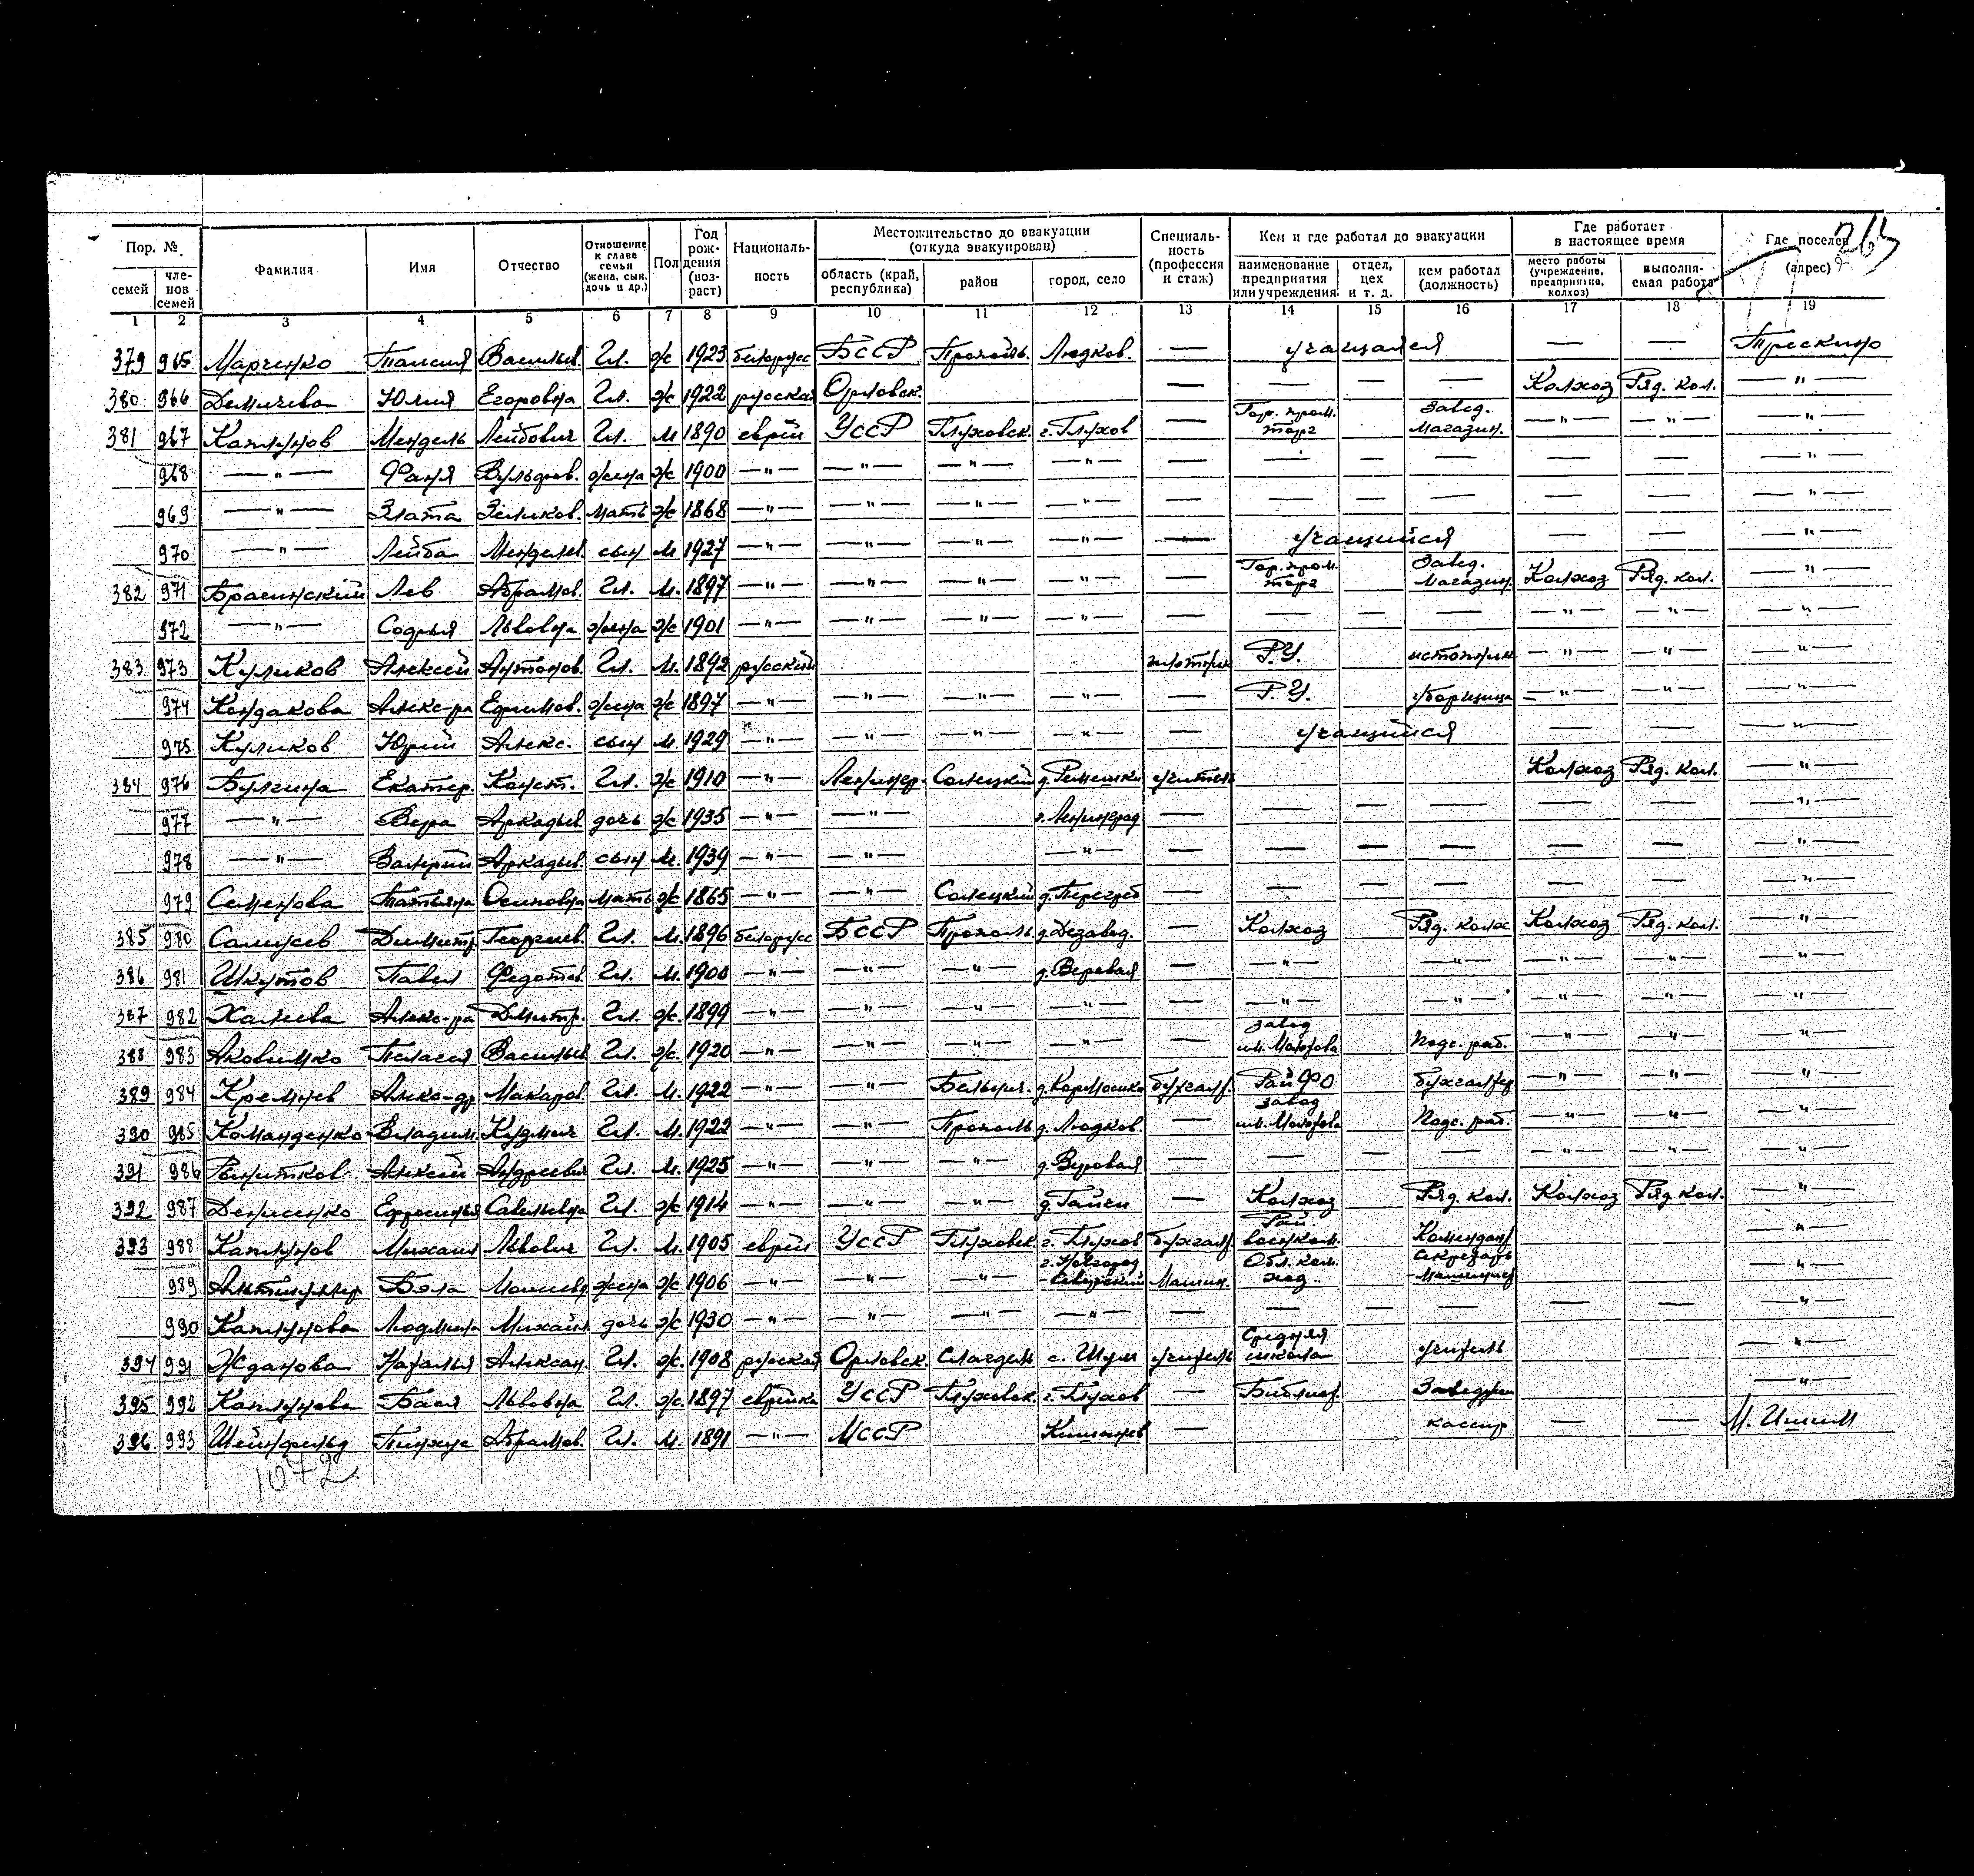 263
Пор. № Фамилия Имя Отчество Отношение к главе семьи (жена, сын, дочь и др.) Пол Год рождения (возраст) Националь-ность Местожительство до эвакуации (откуда эвакуирован) Специаль-ность (профессия и стаж) Кем и где работал до эвакуации Где работает в настоящее время Где поселен (адрес)
семей чле-нов семей область (край, республика) район город, село наименование предприятия или учреждения отдел, цех и т. д. кем работал (должность) место работы (учреждение, предприятие, колхоз) выполня-емая работа
1 2 3 4 5 6 7 8 9 10 11 12 13 14 15 16 17 18 19
379 965 Марченко Таисия Васильев. Гл. ж 1923 белорусс БССР Пропойск. Людков. — учащаяся — — Трескино
380 966 Демичева Юлия Егоровна Гл. ж 1922 русская Орловск. — — — — Колхоз Ряд. кол. —"—
381 967 Каплунов Мендель Лейбович Гл. м 1890 еврей УССР Глуховск. г. Глухов — Гор. пром. торг завед. магазин. —"— —"— —"—
968 —"— Фаня Вульфов. жена ж 1900 —"— —"— —"— —"— — — — — — — —"—
969 —"— Злата Зеликов. мать ж 1868 —"— —"— —"— —"— — — — — — — —"—
970 —"— Лейба Менделев. сын м 1927 —"— —"— —"— —"— — учащийся — — —"—
382 971 Брагинский Лев Абрамов. Гл. м. 1897 —"— —"— —"— —"— — Гор. пром. торг Завед. магазин. Колхоз Ряд. кол. —"—
972 —"— Софья Львовна жена ж 1901 —"— —"— —"— —"— — — — — —"— —"— —"—
383 973 Куликов Алексей Антонов. Гл. м. 1892 русский плотник Р.У. истопник —"— —"— —"—
974 Кондакова Алекс-ра Ефимов. жена ж 1897 —"— —"— —"— —"— — Р.У. уборщица —"— —"— —"—
975 Куликов Юрий Алекс. сын м. 1929 —"— —"— —"— —"— — учащийся — — —"—
384 976 Булгина Екатер. Конст. Гл. ж 1910 —"— Ленингр. Солецкий учитель Колхоз Ряд. кол. —"—
977 —"— Вера Аркадьев. дочь ж 1935 —"— —"— г. Ленинград — — — — — — —"—
978 —"— Валерий Аркадьев. сын м. 1939 —"— —"— —"— — — — — — — —"—
979 Семенова Татьяна Осиповна мать ж 1865 —"— —"— Солецкий — — — — — — —"—
385 980 Дмитр. Георгиев. Гл. м. 1896 белорусс БССР Пропойск. — Колхоз Ряд. колх Колхоз Ряд. кол. —"—
386 981 Шкутов Павел Федотов. Гл. м. 1900 —"— —"— —"— д. Веревая — —"— —"— —"— —"— —"—
387 982 Халеева Алекс-ра Дмитр. Гл. ж. 1899 —"— —"— —"— —"— — —"— —"— —"— —"— —"—
388 983 Яковимко Пелагея Васильев. Гл. ж. 1920 —"— —"— —"— —"— — завод им. Молотова Подс. раб. —"— —"— —"—
389 984 Кремнев Алекс-др Макаров. Гл. м. 1922 —"— —"— бухгалт. РайФО бухгалтер —"— —"— —"—
390 985 Команденко Владим. Кузмич Гл. м. 1922 —"— —"— Пропойск д. Людков. — завод им. Молотова Подс. раб. —"— —"— —"—
391 986 Алексей Андреевич Гл. м. 1925 —"— —"— —"— — — — — —"— —"— —"—
392 987 Денисенко Ефросинья Савельевна Гл. ж 1914 —"— —"— —"— — Колхоз Ряд. кол. Колхоз Ряд. кол. —"—
393 988 Каплунов Михаил Львович Гл. м. 1905 еврей УССР Глуховск. г. Глухов бухгалт. Рай. военком. Комендант —"—
989 Бэла жена ж 1906 —"— —"— —"— г. Новгород-Северский Машин. секретарь-машинист —"—
990 Каплунова Людмила Михайл. дочь ж 1930 —"— —"— —"— —"— — — — — — — —"—
394 991 Жданова Наталья Алексан. Гл. ж. 1908 русская Орловск. учитель Средняя школа учитель —"—
395 992 Каплунова Бася Львовна Гл. ж. 1897 еврейка УССР Глуховск. г. Глухов — Библиот. —"—
396 993 Шейнфельд Пинхус Абрамов. Гл. м. 1891 —"— МССР Кишинев — кассир — — М. Ишим
1072